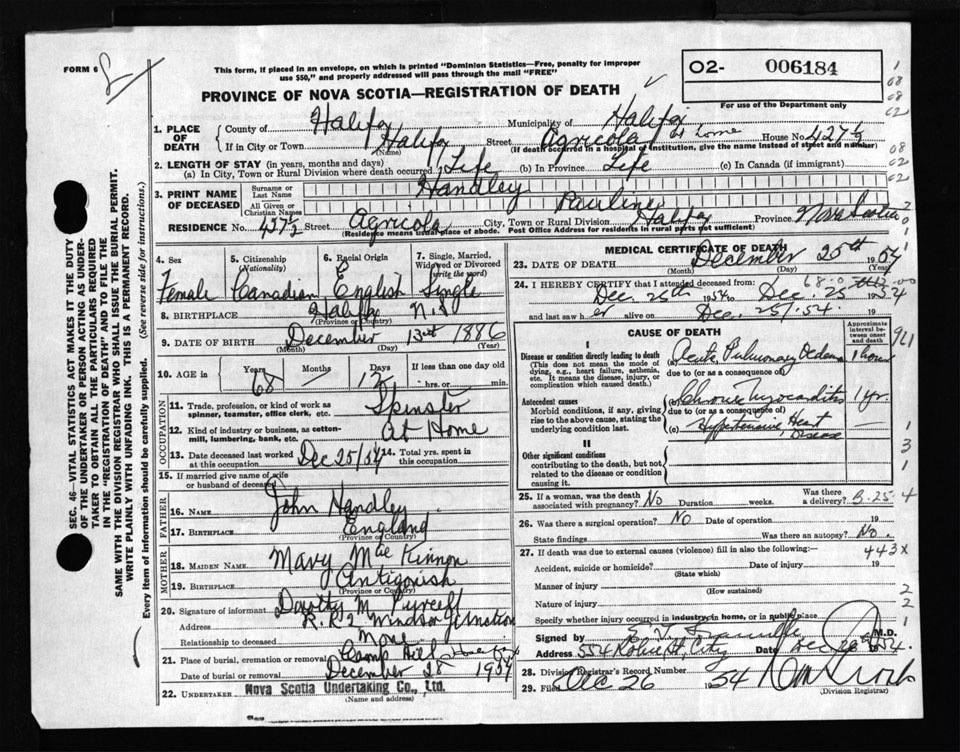 FORM 6
This form, if placed in an envelope, on which is printed "Dominion Statistics—Free, penalty for improper
use $50," and properly addressed will pass through the mail "FREE"
O2- 006184
For use of the Department only
PROVINCE OF NOVA SCOTIA—REGISTRATION OF DEATH
1. PLACE OF DEATH
County of Halifax Municipality of Halifax
If in City or Town Halifax Street Agricola at home House No. 427½
(Name) (If death occurred in a hospital or institution, give the name instead of street and number)
2. LENGTH OF STAY (in years, months and days)
(a) In City, Town or Rural Division where death occurred Life (b) In Province Life (c) In Canada (if immigrant)
3. PRINT NAME OF DECEASED
Surname or Last Name Handley
All Given or Christian Names Pauline
RESIDENCE No. 427½ Street Agricola City, Town or Rural Division Halifax Province Nova Scotia
(Residence means usual place of abode. Post Office Address for residents in rural parts not sufficient)
4. Sex Female
5. Citizenship (Nationality) Canadian
6. Racial Origin English
7. Single, Married, Widowed or Divorced (write the word) Single
8. BIRTHPLACE Halifax N.S.
(Province or Country)
9. DATE OF BIRTH December 13th 1886
(Month) (Day) (Year)
10. AGE in Years 68 Months — Days 12 If less than one day old hrs. or min.
OCCUPATION
11. Trade, profession, or kind of work as spinner, teamster, office clerk, etc. Spinster
12. Kind of industry or business, as cotton-mill, lumbering, bank, etc. At Home
13. Date deceased last worked at this occupation Dec 25/54
14. Total yrs. spent in this occupation
15. If married give name of wife or husband of deceased
FATHER
16. Name John Handley
17. Birthplace England
(Province or Country)
MOTHER
18. MAIDEN NAME Mary MacKinnon
19. BIRTHPLACE Antigonish
(Province or Country)
20. Signature of informant Dorothy M. Purcell
Address R.R.2 Windsor Junction
Relationship to deceased None
21. Place of burial, cremation or removal Camp Hill Halifax
Date of burial or removal December 28 1954
22. UNDERTAKER Nova Scotia Undertaking Co., Ltd.
(Name and address)
MEDICAL CERTIFICATE OF DEATH
23. DATE OF DEATH December 25th 1954
(Month) (Day) (Year)
24. I HEREBY CERTIFY that I attended deceased from:
Dec. 25th 1954 to Dec. 25 1954
and last saw her alive on Dec. 25/.54.
CAUSE OF DEATH
Approximate interval between onset and death
I
Disease or condition directly leading to death
(This does not mean the mode of dying, e.g., heart failure, asthenia, etc. It means the disease, injury, or complication which caused death.)
(a) Acute Pulmonary Oedema 1 hour
due to (or as a consequence of)
Antecedent causes
Morbid conditions, if any, giving rise to the above cause, stating the underlying condition last.
(b) Chronic Myocarditis 1 yr.
due to (or as a consequence of)
(c) Hypertensive Heart Disease —
II
Other significant conditions
contributing to the death, but not related to the disease or condition causing it.
25. If a woman, was the death associated with pregnancy? No Duration weeks. Was there a delivery? B.25
26. Was there a surgical operation? No Date of operation 19
State findings Was there an autopsy? No.
27. If death was due to external causes (violence) fill in also the following:— 443X
Accident, suicide or homicide? Date of injury 19
(State which)
Manner of injury
(How sustained)
Nature of injury
Specify whether injury occurred in industry, in home, or in public place
Signed by M.D.
Address 554 Robie St, City Date Dec 26 1954.
28. Division Registrar's Record Number
29. Filed Dec. 26 1954
(Division Registrar)
SEC. 46—VITAL STATISTICS ACT MAKES IT THE DUTY
OF THE UNDERTAKER OR PERSON ACTING AS UNDERTAKER TO OBTAIN ALL THE PARTICULARS REQUIRED
IN THE "REGISTRATION OF DEATH" AND TO FILE THE
SAME WITH THE DIVISION REGISTRAR WHO SHALL ISSUE THE BURIAL PERMIT.
WRITE PLAINLY WITH UNFADING INK. THIS IS A PERMANENT RECORD.
Every item of information should be carefully supplied. (See reverse side for instructions.)